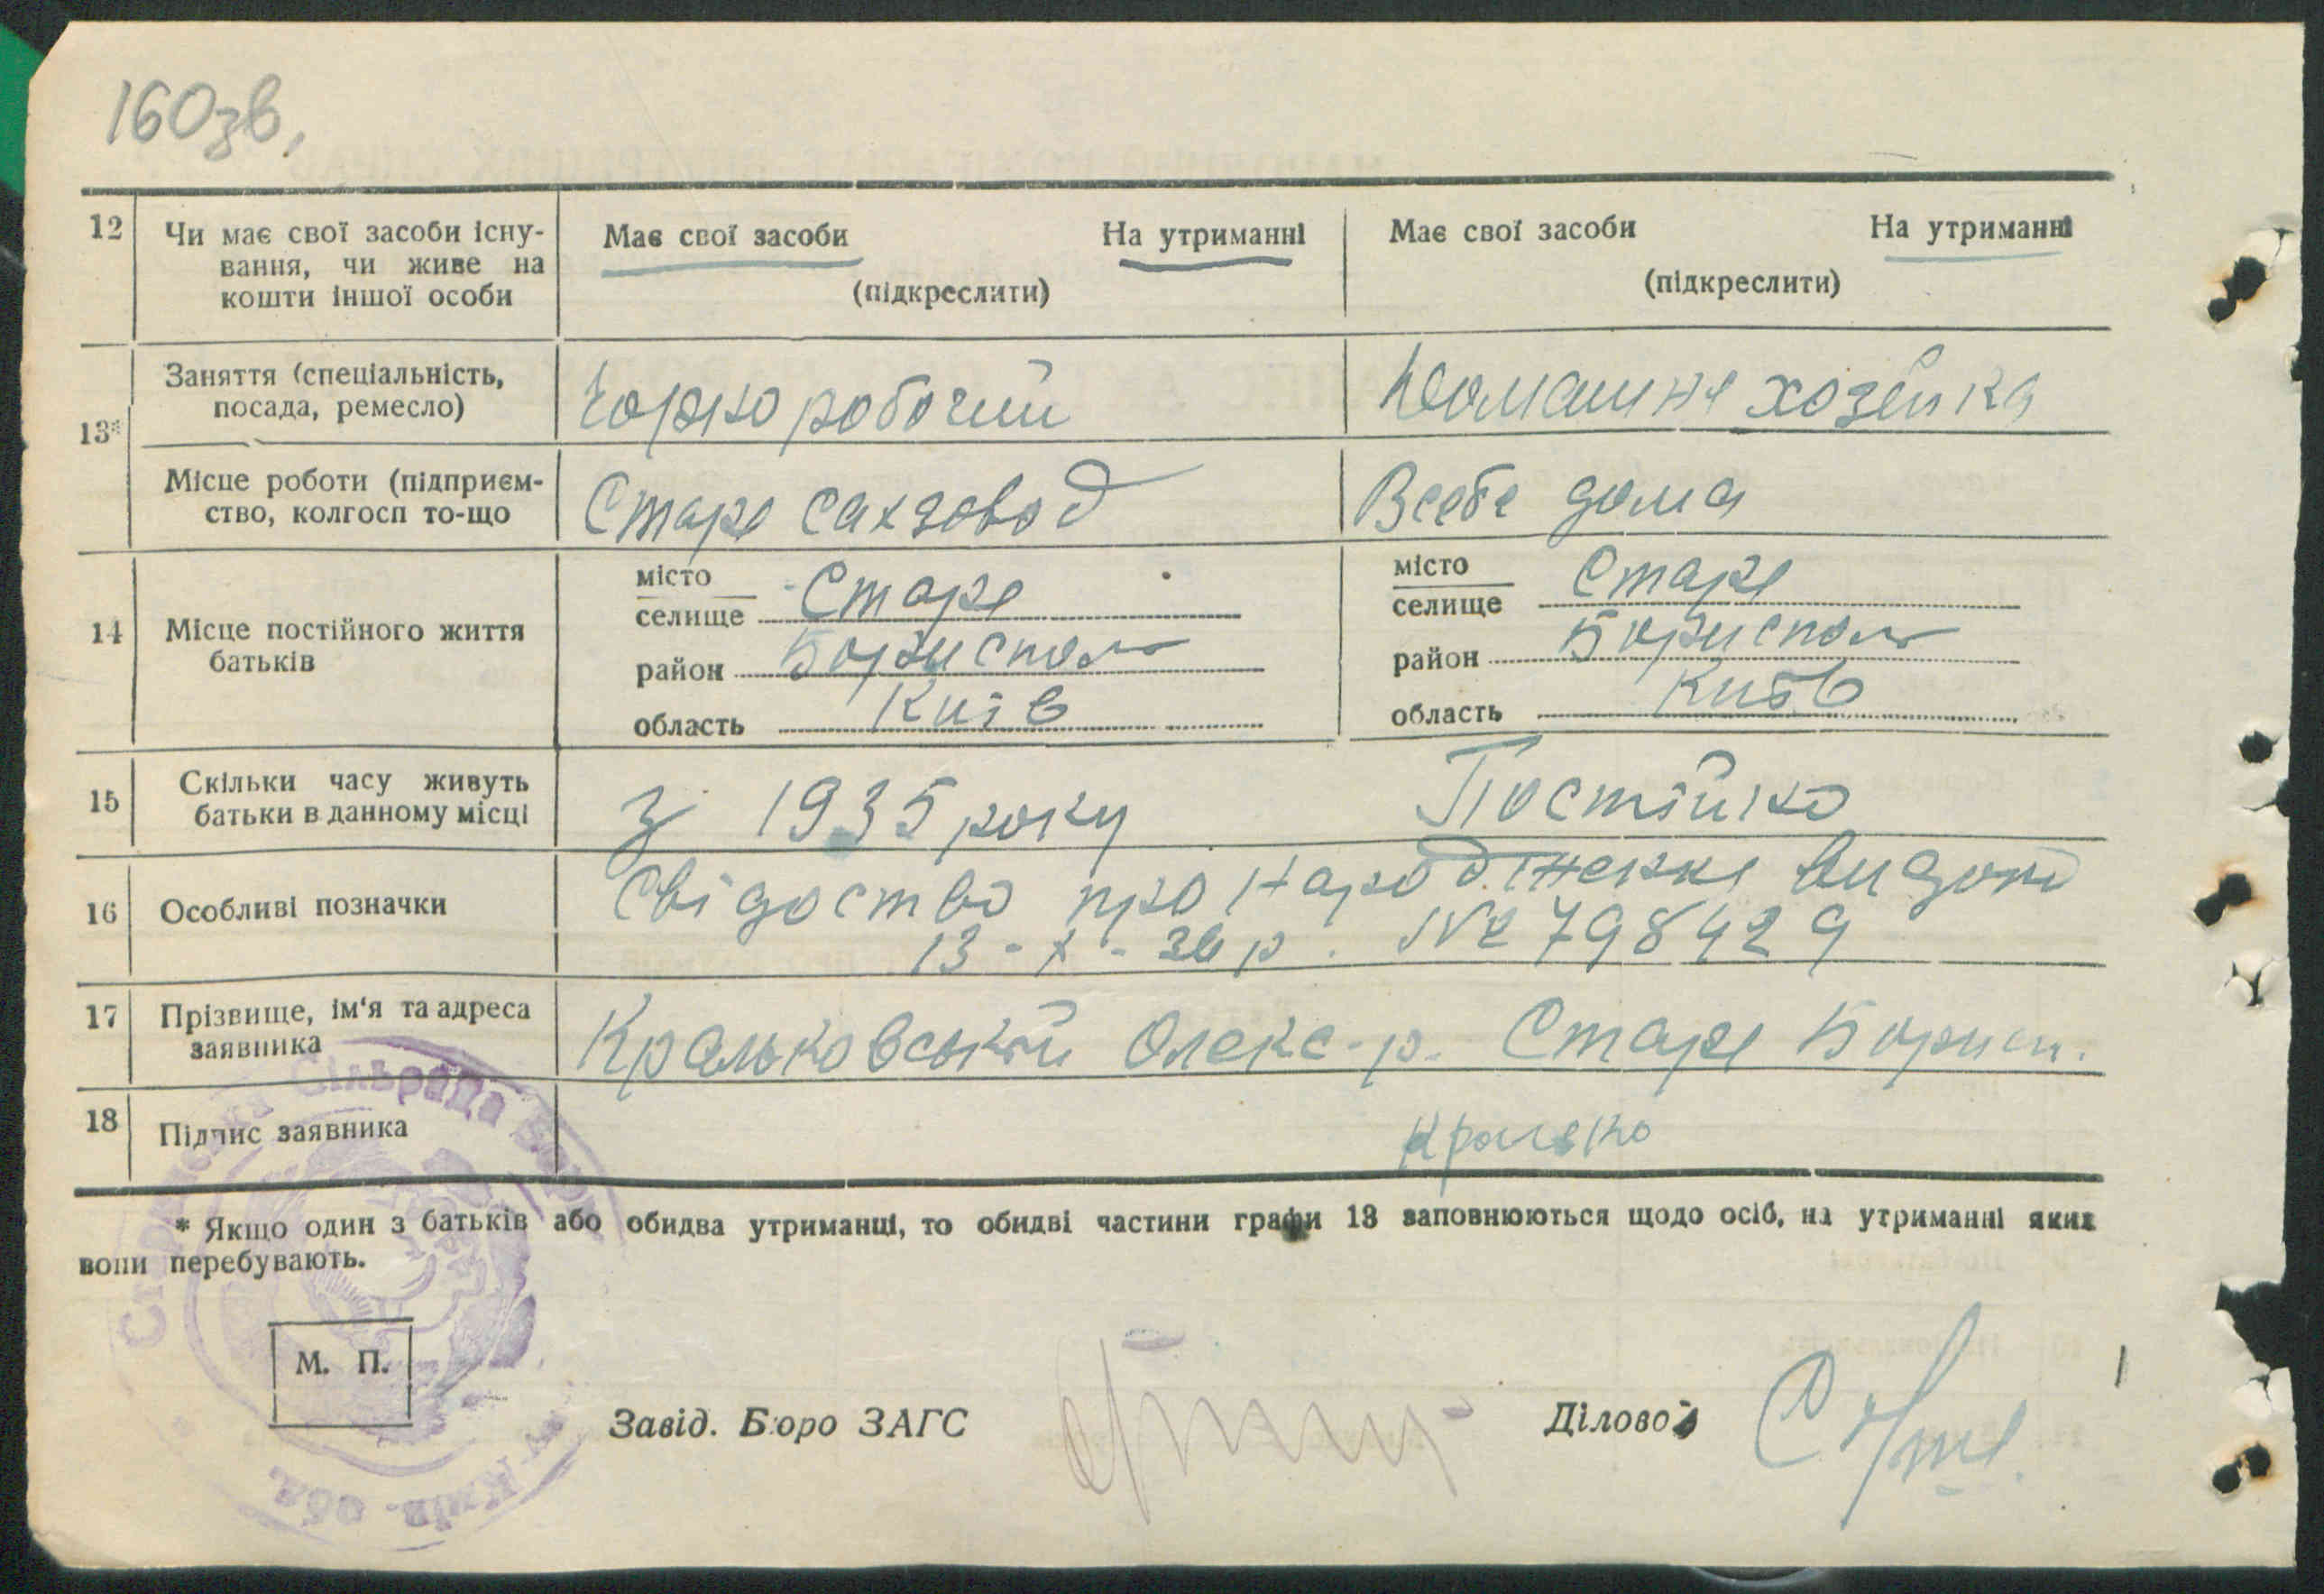 160зв.
12 Чи має свої засоби існу-
вання, чи живе на
кошти іншої особи
Має свої засоби На утриманні
(підкреслити)
Має свої засоби На утриманні
(підкреслити)
13*
Заняття (спеціальність,
посада, ремесло)
Чорно робочий
Домашня хозейка
Місце роботи (підприєм-
ство, колгосп то-що
Старе сахзовод
Всебе дома
14 Місце постійного життя
батьків
місто
селище Старе
район Бориспол
область Київ
місто
селище Старе
район Бориспол
область Київ
15 Скільки часу живуть
батьки в данному місці
З 1935 року Постійно
16 Особливі позначки
Свідоство про народження видано
13-X-36 р. № 798429
17 Прізвище, ім'я та адреса
заявника
Кральковський Олекс-р. Старе Борисп.
18 Підпис заявника
Кралько
* Якщо один з батьків або обидва утриманці, то обидві частини графи 13 заповнюються щодо осіб, на утриманні яких
вони перебувають.
М. П.
Завід. Бюро ЗАГС
Діловод
Сільрада
Київ. обл.